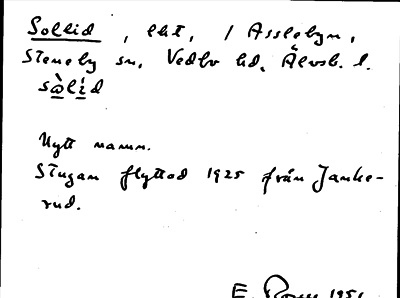 Sollid, lht, / Asslebyn,
Steneby sn, Vedbo hd, Älvsb. l.
sòlìd
Nytt namn.
Stugan flyttad 1925 från Janke-
rud.
E. 1951